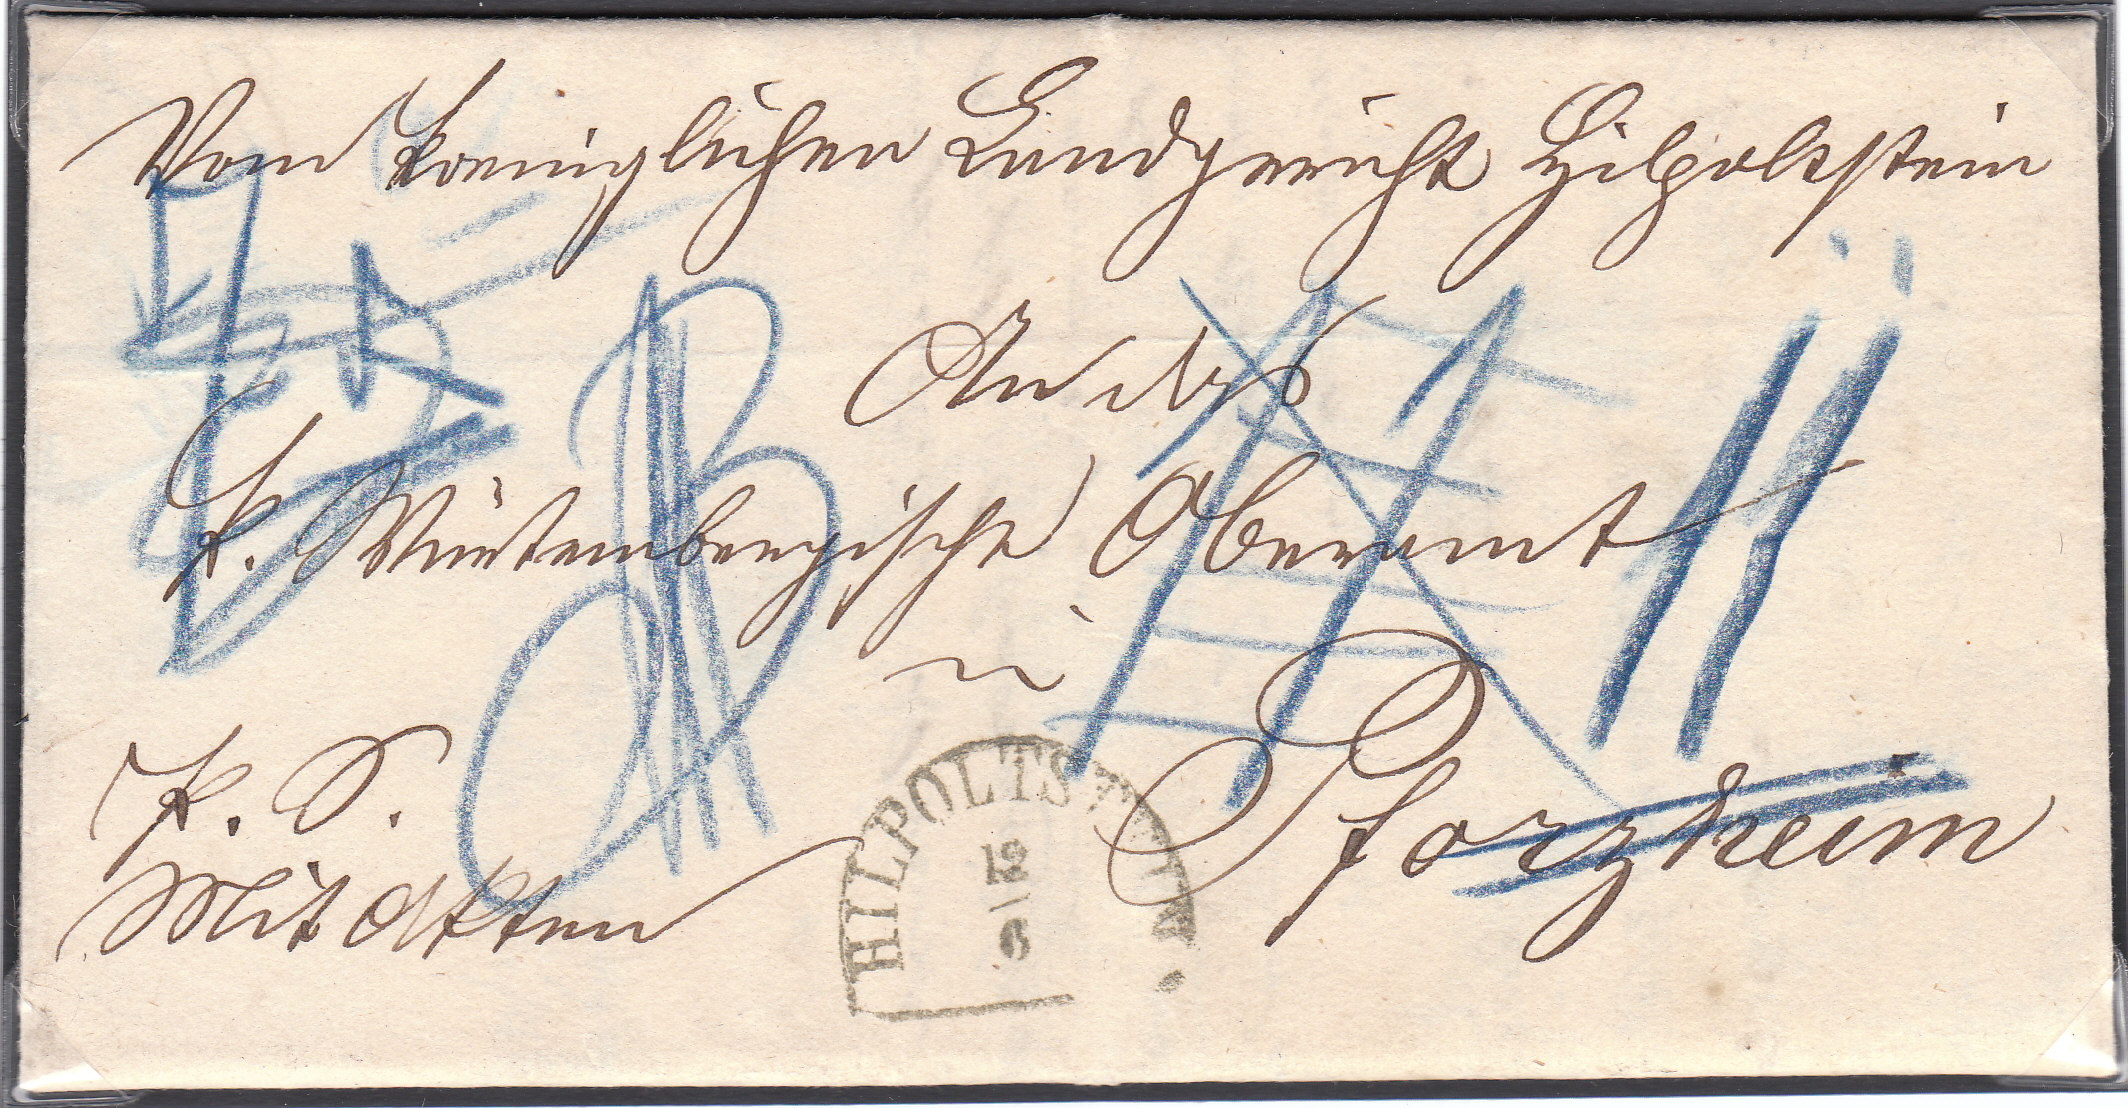 Vom koeniglichen Landgericht Hilpoltstein
An das
K. Würtembergische Oberamt
in
Pforzheim
R. S.
Mit Akten
HILPOLTSTEIN.
12
6